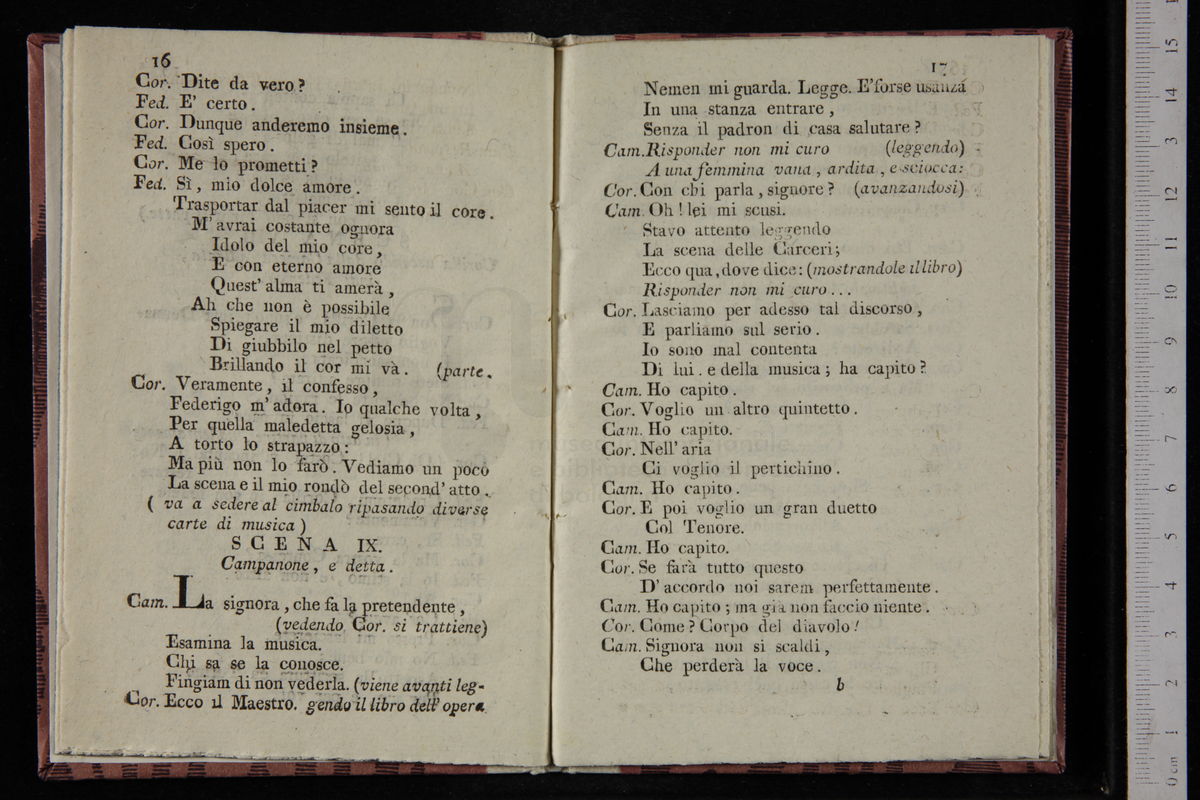 16
Cor. Dite da vero?
Fed. E' certo.
Cor. Dunque anderemo insieme.
Fed. Così spero.
Cor. Me lo prometti?
Fed. Sì, mio dolce amore.
Trasportar dal piacer mi sento il core.
M'avrai costante ognora
Idolo del mio core,
E con eterno amore
Quest' alma ti amerà,
Ah che non è possibile
Spiegare il mio diletto
Di giubbilo nel petto
Brillando il cor mi và. (parte.
Cor. Veramente, il confesso,
Federigo m'adora. Io qualche volta,
Per quella maledetta gelosia,
A torto lo strapazzo:
Ma più non lo farò. Vediamo un poco
La scena e il mio rondò del second' atto.
( va a sedere al cimbalo ripasando diverse
carte di musica )
SCENA IX.
Campanone, e detta.
Cam. La signora, che fa la pretendente,
(vedendo Cor. si trattiene)
Esamina la musica.
Chi sa se la conosce.
Fingiam di non vederla. (viene avanti leg-
Cor. Ecco il Maestro. gendo il libro dell' opera
17
Nemen mi guarda. Legge. E'forse usanza
In una stanza entrare,
Senza il padron di casa salutare?
Cam. Risponder non mi curo (leggendo)
A una femmina vana, ardita, e sciocca:
Cor. Con chi parla, signore? (avanzandosi)
Cam. Oh! lei mi scusi.
Stavo attento leggendo
La scena delle Carceri;
Ecco qua, dove dice: (mostrandole il libro)
Risponder non mi curo...
Cor. Lasciamo per adesso tal discorso,
E parliamo sul serio.
Io sono mal contenta
Di lui. e della musica; ha capito?
Cam. Ho capito.
Cor. Voglio un altro quintetto.
Cam. Ho capito.
Cor. Nell' aria
Ci voglio il pertichino.
Cam. Ho capito.
Cor. E poi voglio un gran duetto
Col Tenore.
Cam. Ho capito.
Cor. Se farà tutto questo
D' accordo noi sarem perfettamente.
Cam. Ho capito; ma già non faccio niente.
Cor. Come? Corpo del diavolo!
Cam. Signora non si scaldi,
Che perderà la voce.
b